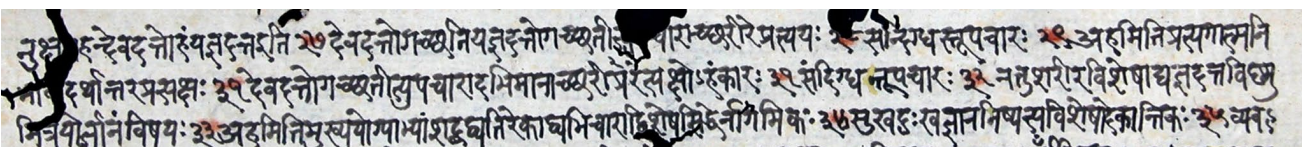 न्वक्ष हन्देवदत्तोहंयज्ञदत्तइति २७ देवदत्तोगच्छतियज्ञदत्तोगच्छती चाराच्छरीरेप्रत्ययः सन्दिग्धस्तूपचारः २९ अहमितिप्रत्यगात्मनि
दर्थान्तरप्रत्यक्षः ३१ देवदत्तोगच्छतीत्युपचारादभिमानाच्छरीरप्रत्यक्षोहंकारः ३१ संदिग्धस्तूपचारः ३२ नतुशरीरविशेषाद्यज्ञदत्तविष्णु
मित्रयोर्ज्ञानंविषयः ३३ अहमितिमुख्ययोग्याभ्यांशब्दवद्यतिरेकाव्यभिचाराद्विशेषसिद्धेर्नागमिकः ३४ सुखदुःखज्ञाननिष्पत्त्यविशेषोदेकान्तिकः ३५ व्यवस्